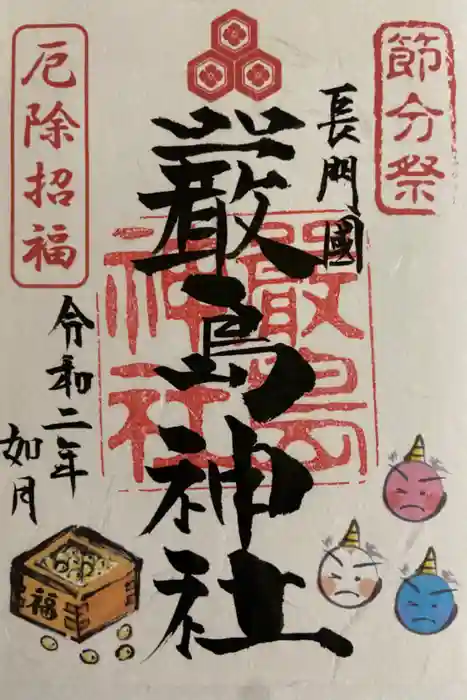 節分祭
長門國
嚴島神社
嚴島神社
厄除招福
令和二年
如月
福